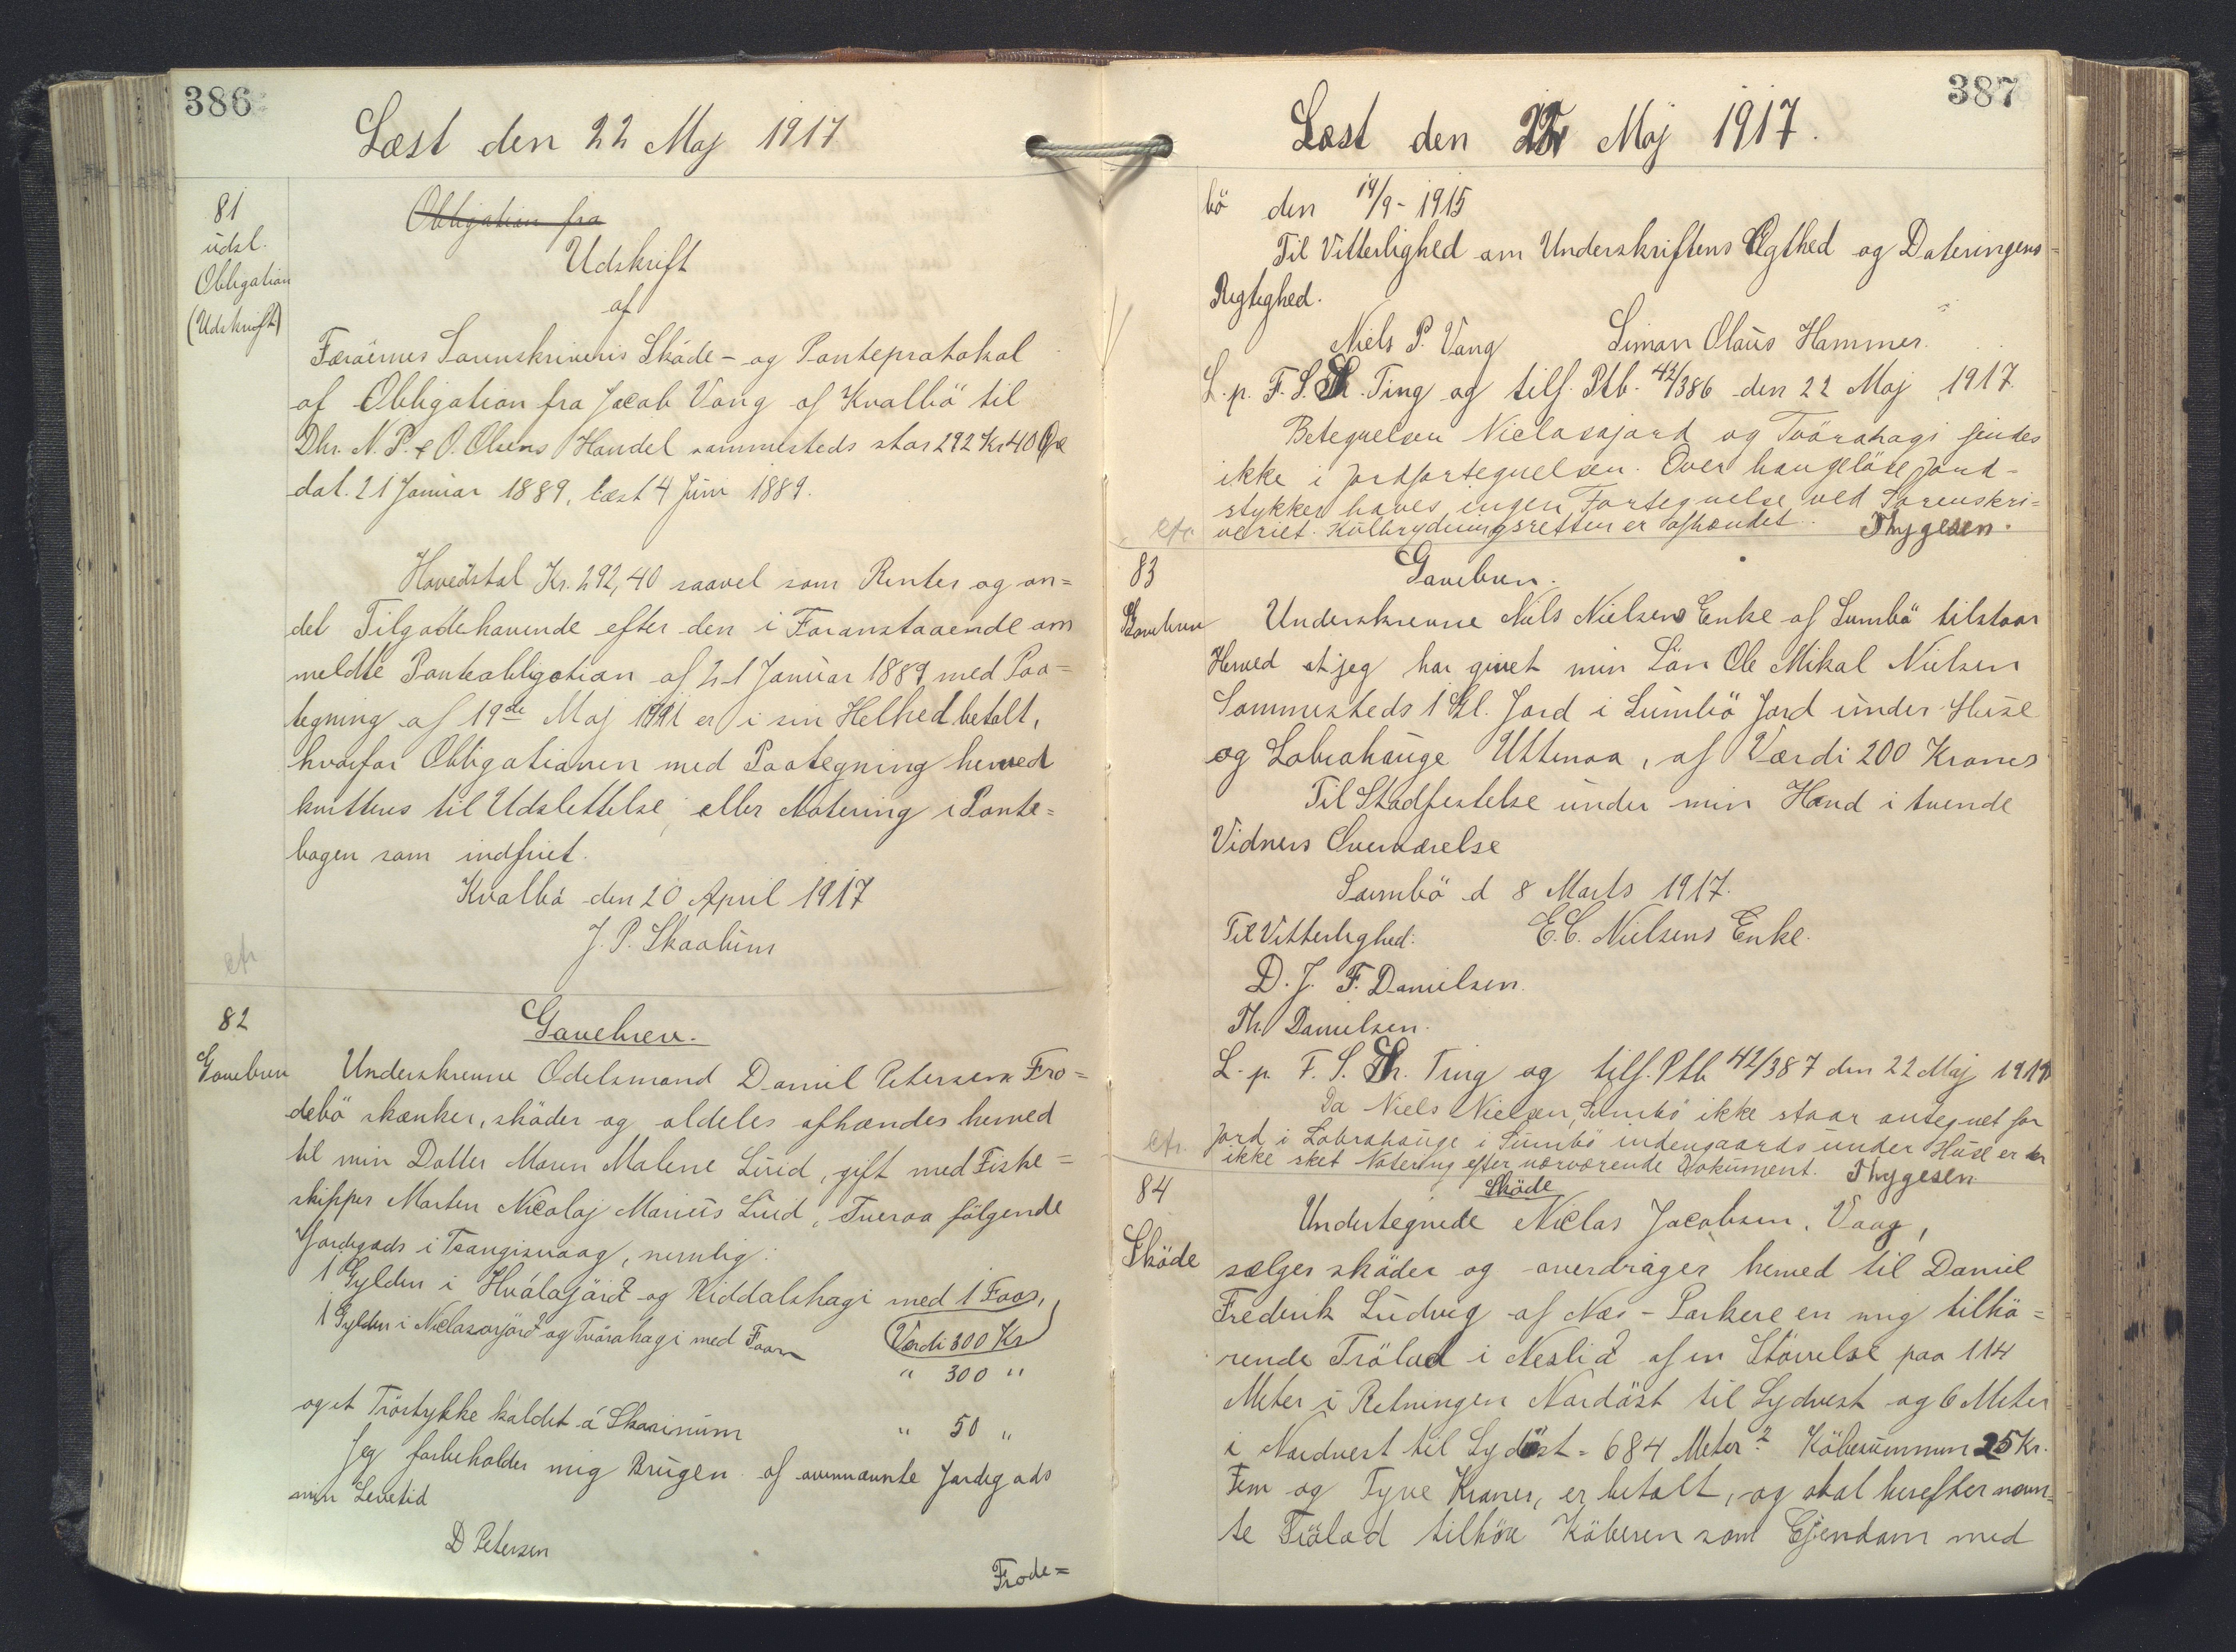 386
Læst den 22 Maj 1917
81
udsl.
Obligation
(Udskrift)
Obligation fra
Udskrift
af
Færöernes Sorenskriveris Skøde- og Panteprotokol
af Obligation fra Jacob Vang af Kvalbö til
Dhr. N. P. & O. Olsens Handel sammesteds stor 292 Kr 40 Øre
dat. 21 Januar 1889, læst 4 Juni 1889.
Hovedstol Kr. 292,40 saavel som Renter og an=
det Tilgodehavende efter den i Foranstaaende om
meldte Panteobligation af 21 Januar 1889 med Paa=
tegning af 19de Maj 1891 er i sin Helhed betalt,
hvorfor Obligationen med Paategning herved
kvitteres til Udslettelse eller Notering i Pante=
bogen som indfriet.
Kvalbö den 20 April 1917
J. P. Skaalum
cfr
82
Gavebrev
Gavebrev.
Underskrevne Odelsmand Daniel Petersen Fro=
debö skænker, sköder og aldeles afhændes herved
til min Datter Maren Malene Lüid, gift med Fiske=
skipper Morten Nicolaj Marius Lüid, Tveraa fölgende
Jordegods i Trangisvaag, nemlig:
1 Gylden i Hválajörd og Riddalshagi med 1 Faar,
Værdi 300 Kr
1 Gylden i Niclasarjörd og Tvörahagi med Faar
" 300 "
og et Tröstykke kaldet á Skarinum
" 50 "
Jeg forbeholder mig Brugen af ovennævnte Jordegods
min Levetid
D Petersen
Frode=
387
Læst den 22 Maj 1917.
bö den 19/9- 1915
Til Vitterlighed om Underskriftens Ægthed og Dateringens=
Rigtighed.
Niels P. Vang Simon Olaus Hammer.
L. p. F. S. Sr. Ting og tilf. Ptb. 42/386 den 22 Maj 1917.
Betegnelsen Niclasajord og Tvörahagi findes
ikke i Jordfortegnelsen. Over haugelöse Jord-
stykker haves ingen Fortegnelse ved Sorenskri=
veriet. Kulbrydningsretten er afhændet. Thygesen.
cfr
83
Gavebrev
Gavebrev.
Underskrevne Niels Nielsens Enke af Sumbö tilstaar
Herved at jeg har givet min Sön Ole Mikal Nielsen
Sammesteds 1 Gl. Jord i Sumbö Jord under Huse
og Labrahauge Uttenaa, af Værdi 200 Kroner
Til Stadfestelse under min Haand i tvende
Vidners Overværelse
Sumbö d 8 Marts 1917.
Til Vitterlighed: E. C. Nielsens Enke.
D. J. F. Danielsen.
Th. Danielsen.
L. p. F. S. Sr. Ting og tilf. Ptb 42/387 den 22 Maj 1917
Da Niels Nielsen, Sumbö ikke staar antegnet for
Jord i Labrahauge i Sumbö indengaards under Huse er der
ikke sket Notering efter nærværende Dokument. Thygesen
cfr.
84
Sköde
Sköde
Undertegnede Niclas Jacobsen, Vaag,
sælger sköder og overdrager herved til Daniel
Frederik Ludvig af Næs - Porkere en mig tilhö=
rende Trölad i Neslid af en Störrelse paa 114
Meter i Retningen Nordöst til Sydvest og 6 Meter
i Nordvest til Sydöst = 684 Meter2. Köbesummen 25 Kr.
Fem og Tyve Kroner, er betalt, og skal herefter nævn=
te Trölad tilhöre Köberen som Ejendom med